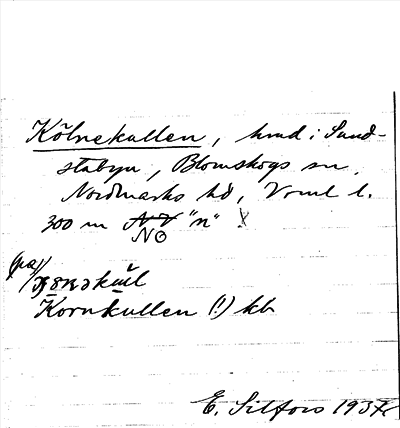 Kölnekullen, hmd i Sand-
stabyn, Blomskogs sn,
Nordmarks hd, Vrml l.
300 m N V "n"
NO
(på)
Kornkullen (!) kb
E. Silfors 1937